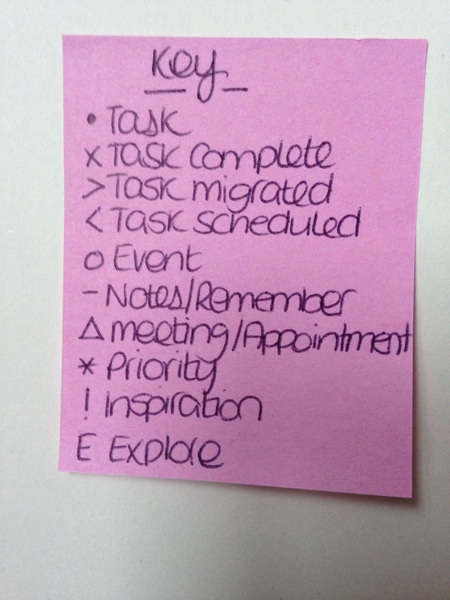 Key
• Task
x Task Complete
> Task migrated
< Task scheduled
o Event
- Notes/Remember
Δ meeting/Appointment
* Priority
! Inspiration
E Explore